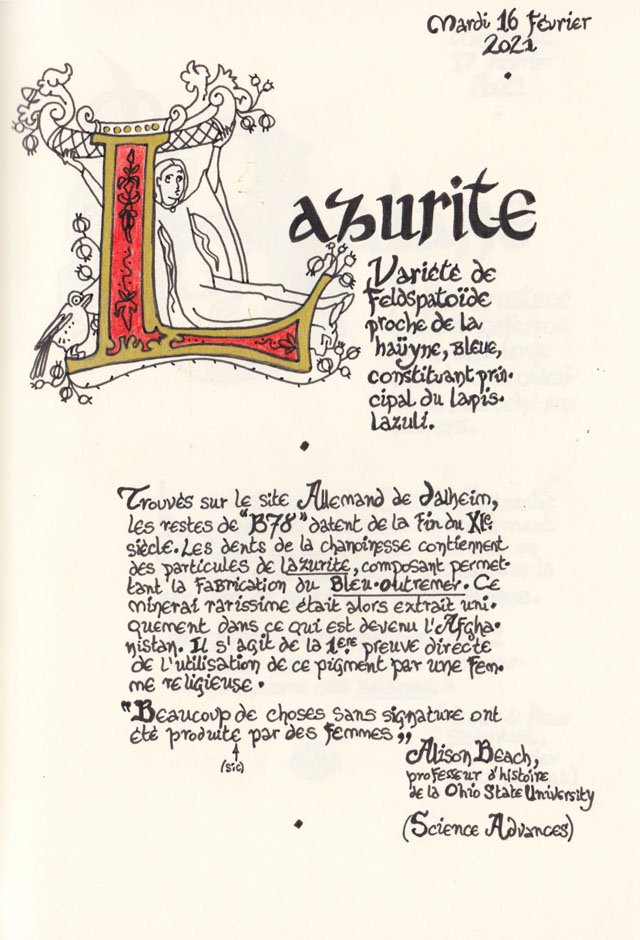 Mardi 16 Février
2021
Lazurite
Variété de
Feldspatoïde
proche de la
haüyne, bleue,
constituant prin-
cipal du lapis-
lazuli.
Trouvés sur le site Allemand de Dalheim,
les restes de "B78" datent de la fin du XIe
siècle. Les dents de la chanoinesse contiennent
des particules de lazurite, composant permet-
tant la fabrication du Bleu-outremer. Ce
minerai rarissime était alors extrait uni-
quement dans ce qui est devenu l'Afgha-
nistan. Il s'agit de la 1ère preuve directe
de l'utilisation de ce pigment par une fem-
me religieuse.
"Beaucoup de choses sans signature ont
été produite par des femmes"
(sic)
Alison Beach,
professeur d'histoire
de la Ohio State University
(Science Advances)